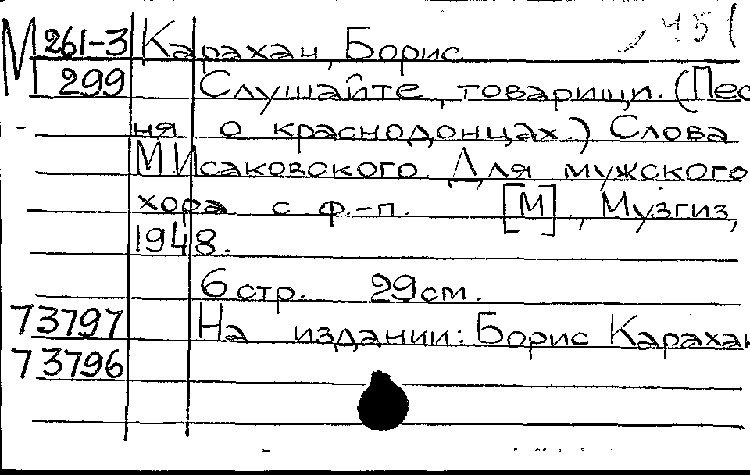 М 261-3 Карахан, Борис
299 Слушайте, товарищи. (Пес
ня о краснодонцах.) Слова
М Исаковского. Для мужского
хора с ф.-п. [М], Музгиз,
1948.
6 стр. 29 см.
73797 На издании: Борис Карахан
73796